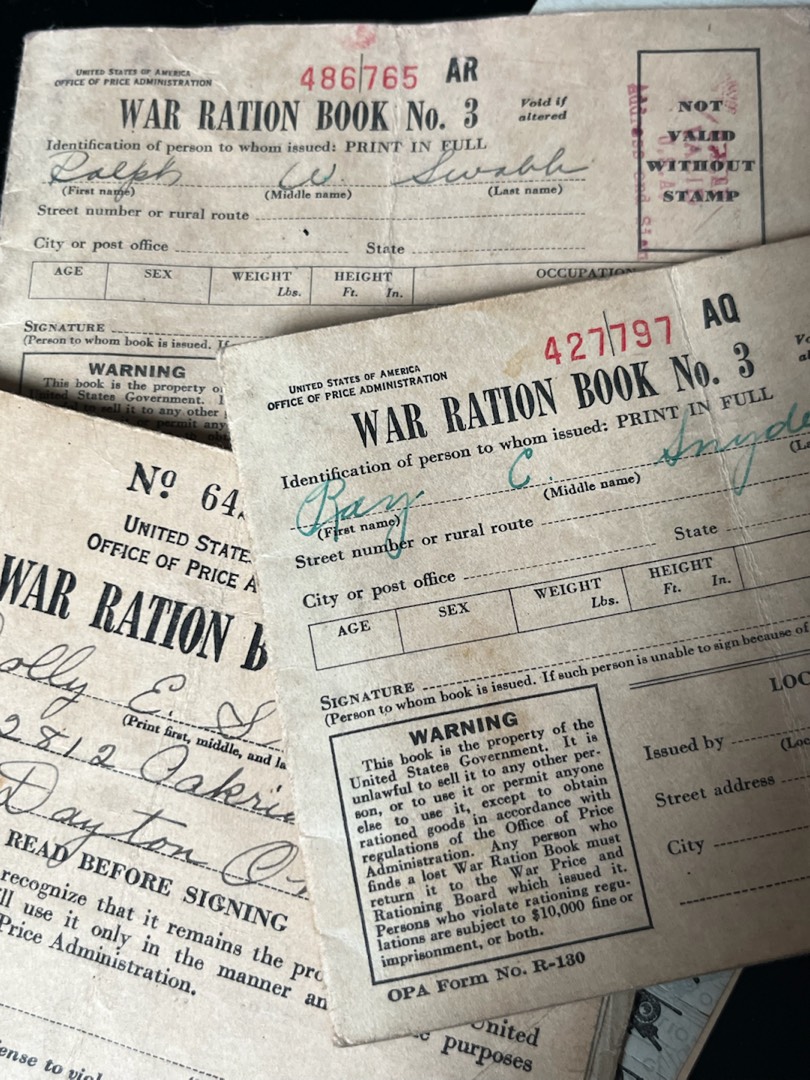 UNITED STATES OF AMERICA
OFFICE OF PRICE ADMINISTRATION
486765 AR
WAR RATION BOOK No. 3
Void if
altered
Identification of person to whom issued: PRINT IN FULL
Ralph W. Swabb
(First name) (Middle name) (Last name)
Street number or rural route
City or post office State
AGE SEX WEIGHT Lbs. HEIGHT Ft. In. OCCUPATION
SIGNATURE
(Person to whom book is issued. If
WARNING
This book is the property o
United States Government. I
to sell it to any other
permit any
NOT
VALID
WITHOUT
STAMP
UNITED STATES OF AMERICA
OFFICE OF PRICE ADMINISTRATION
427797 AQ
WAR RATION BOOK No. 3
Identification of person to whom issued: PRINT IN FULL
Ray C. Snyde
(First name) (Middle name) (La
Street number or rural route
City or post office State
AGE SEX WEIGHT Lbs. HEIGHT Ft. In.
SIGNATURE
(Person to whom book is issued. If such person is unable to sign because of
WARNING
This book is the property of the
United States Government. It is
unlawful to sell it to any other per-
son, or to use it or permit anyone
else to use it, except to obtain
rationed goods in accordance with
regulations of the Office of Price
Administration. Any person who
finds a lost War Ration Book must
return it to the War Price and
Rationing Board which issued it.
Persons who violate rationing regu-
lations are subject to $10,000 fine or
imprisonment, or both.
LOC
Issued by
(Loc
Street address
City
OPA Form No. R-130
No 64
UNITED STATE
OFFICE OF PRICE A
WAR RATION B
olly E. S
(Print first, middle, and la
2812 Oakri
Dayton O
READ BEFORE SIGNING
recognize that it remains the pro
ll use it only in the manner an
Price Administration.
United
purposes
ense to viol